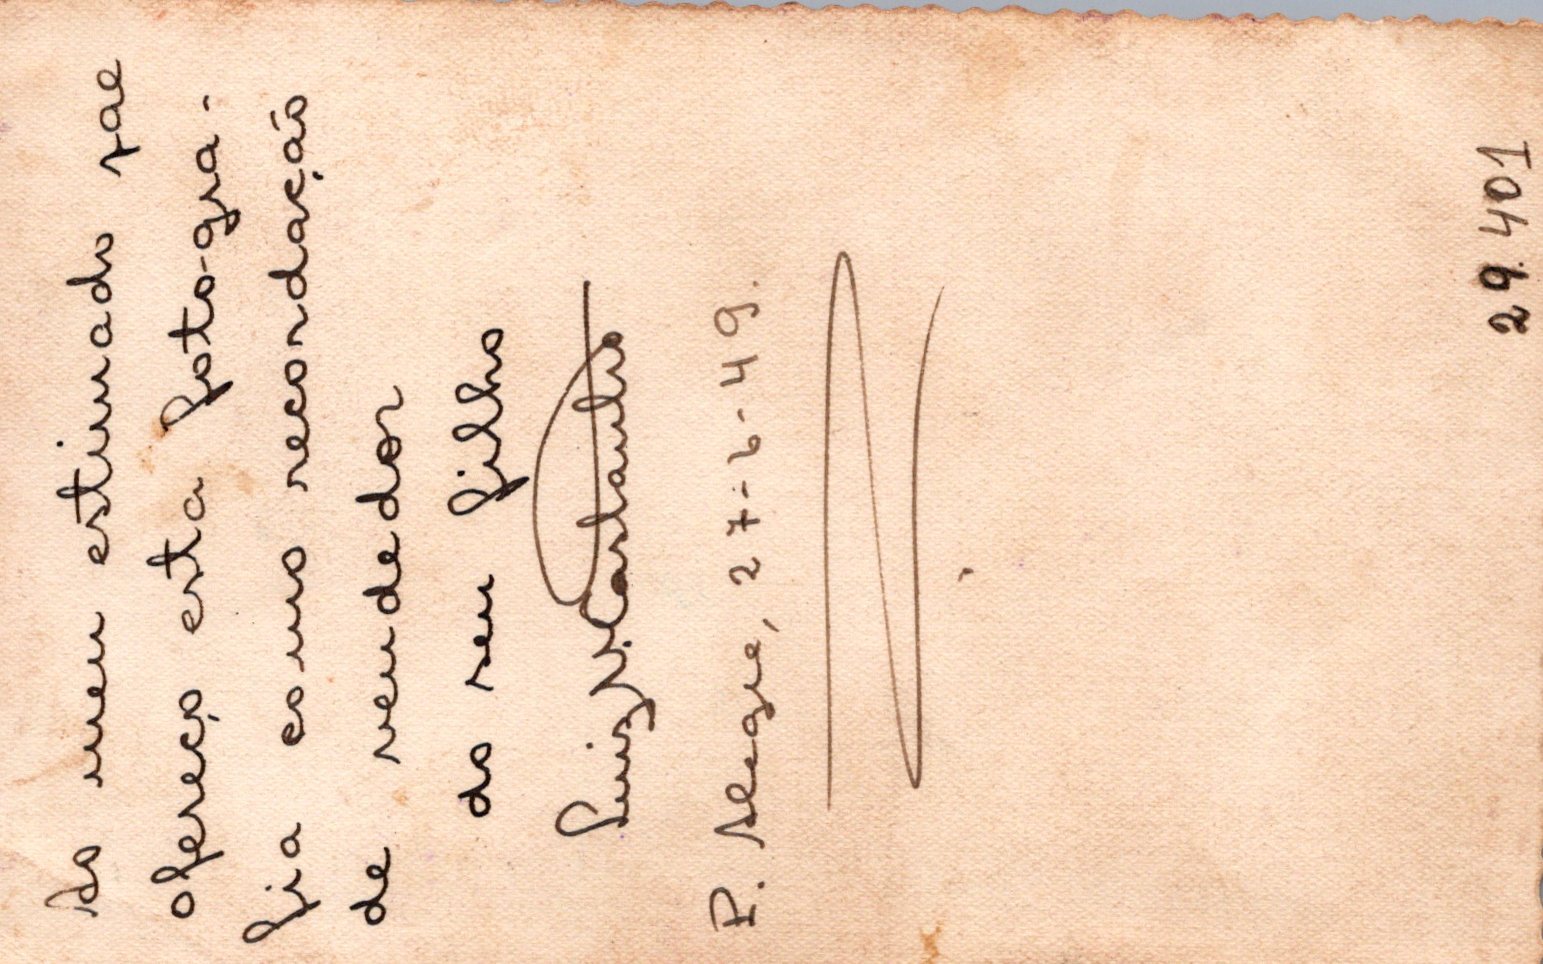 Ao meu estimado pae
ofereço esta foto-gra-
fia como recordação
de vendedor
do seu filho
Luiz N. Castanho
P. Alegre, 27-6-49.
29.401